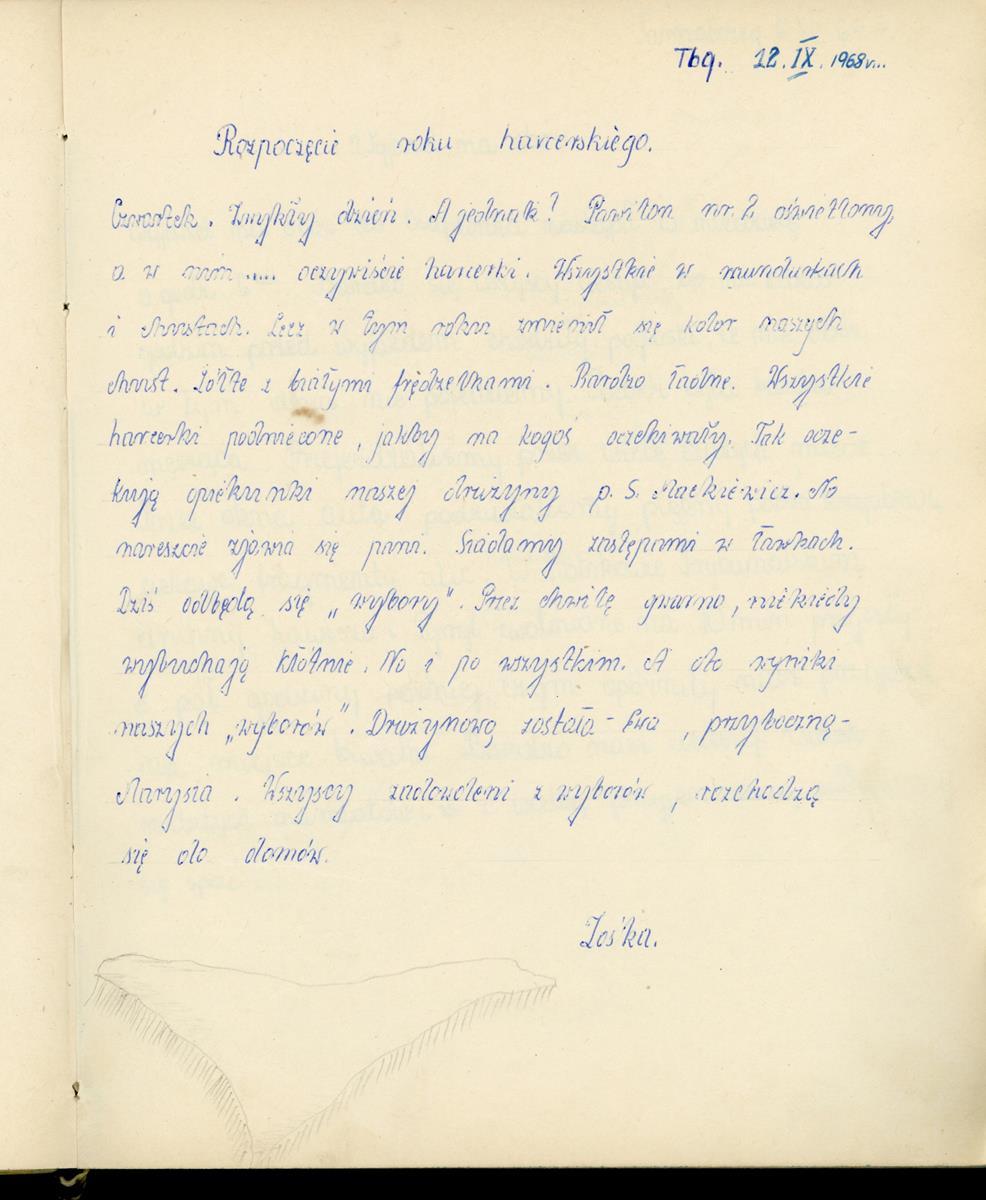 Tbg. 12. IX. 1968 r...
Rozpoczęcie roku harcerskiego.
Czwartek. Zwykły dzień. A jednak? Pawilon nr. 2 oświetlony,
a w nim .... oczywiście harcerki. Wszystkie w mundurkach
i chustach. Lecz w tym roku zmienił się kolor naszych
chust. Żółte z białymi frędzelkami. Bardzo ładne. Wszystkie
harcerki podniecone, jakby na kogoś oczekiwały. Tak ocze-
kują opiekunki naszej drużyny p. S. Mackiewicz. No
nareszcie zjawia się pani. Siadamy zastępami w ławkach.
Dziś odbędą się „wybory". Przez chwilę gwarno, niekiedy
wybuchają kłótnie. No i po wszystkim. A oto wyniki
naszych „wyborów". Drużynową została - Ewa, przyboczną -
Marysia. Wszyscy zadowoleni z wyborów, rozchodzą
się do domów.
Zośka.